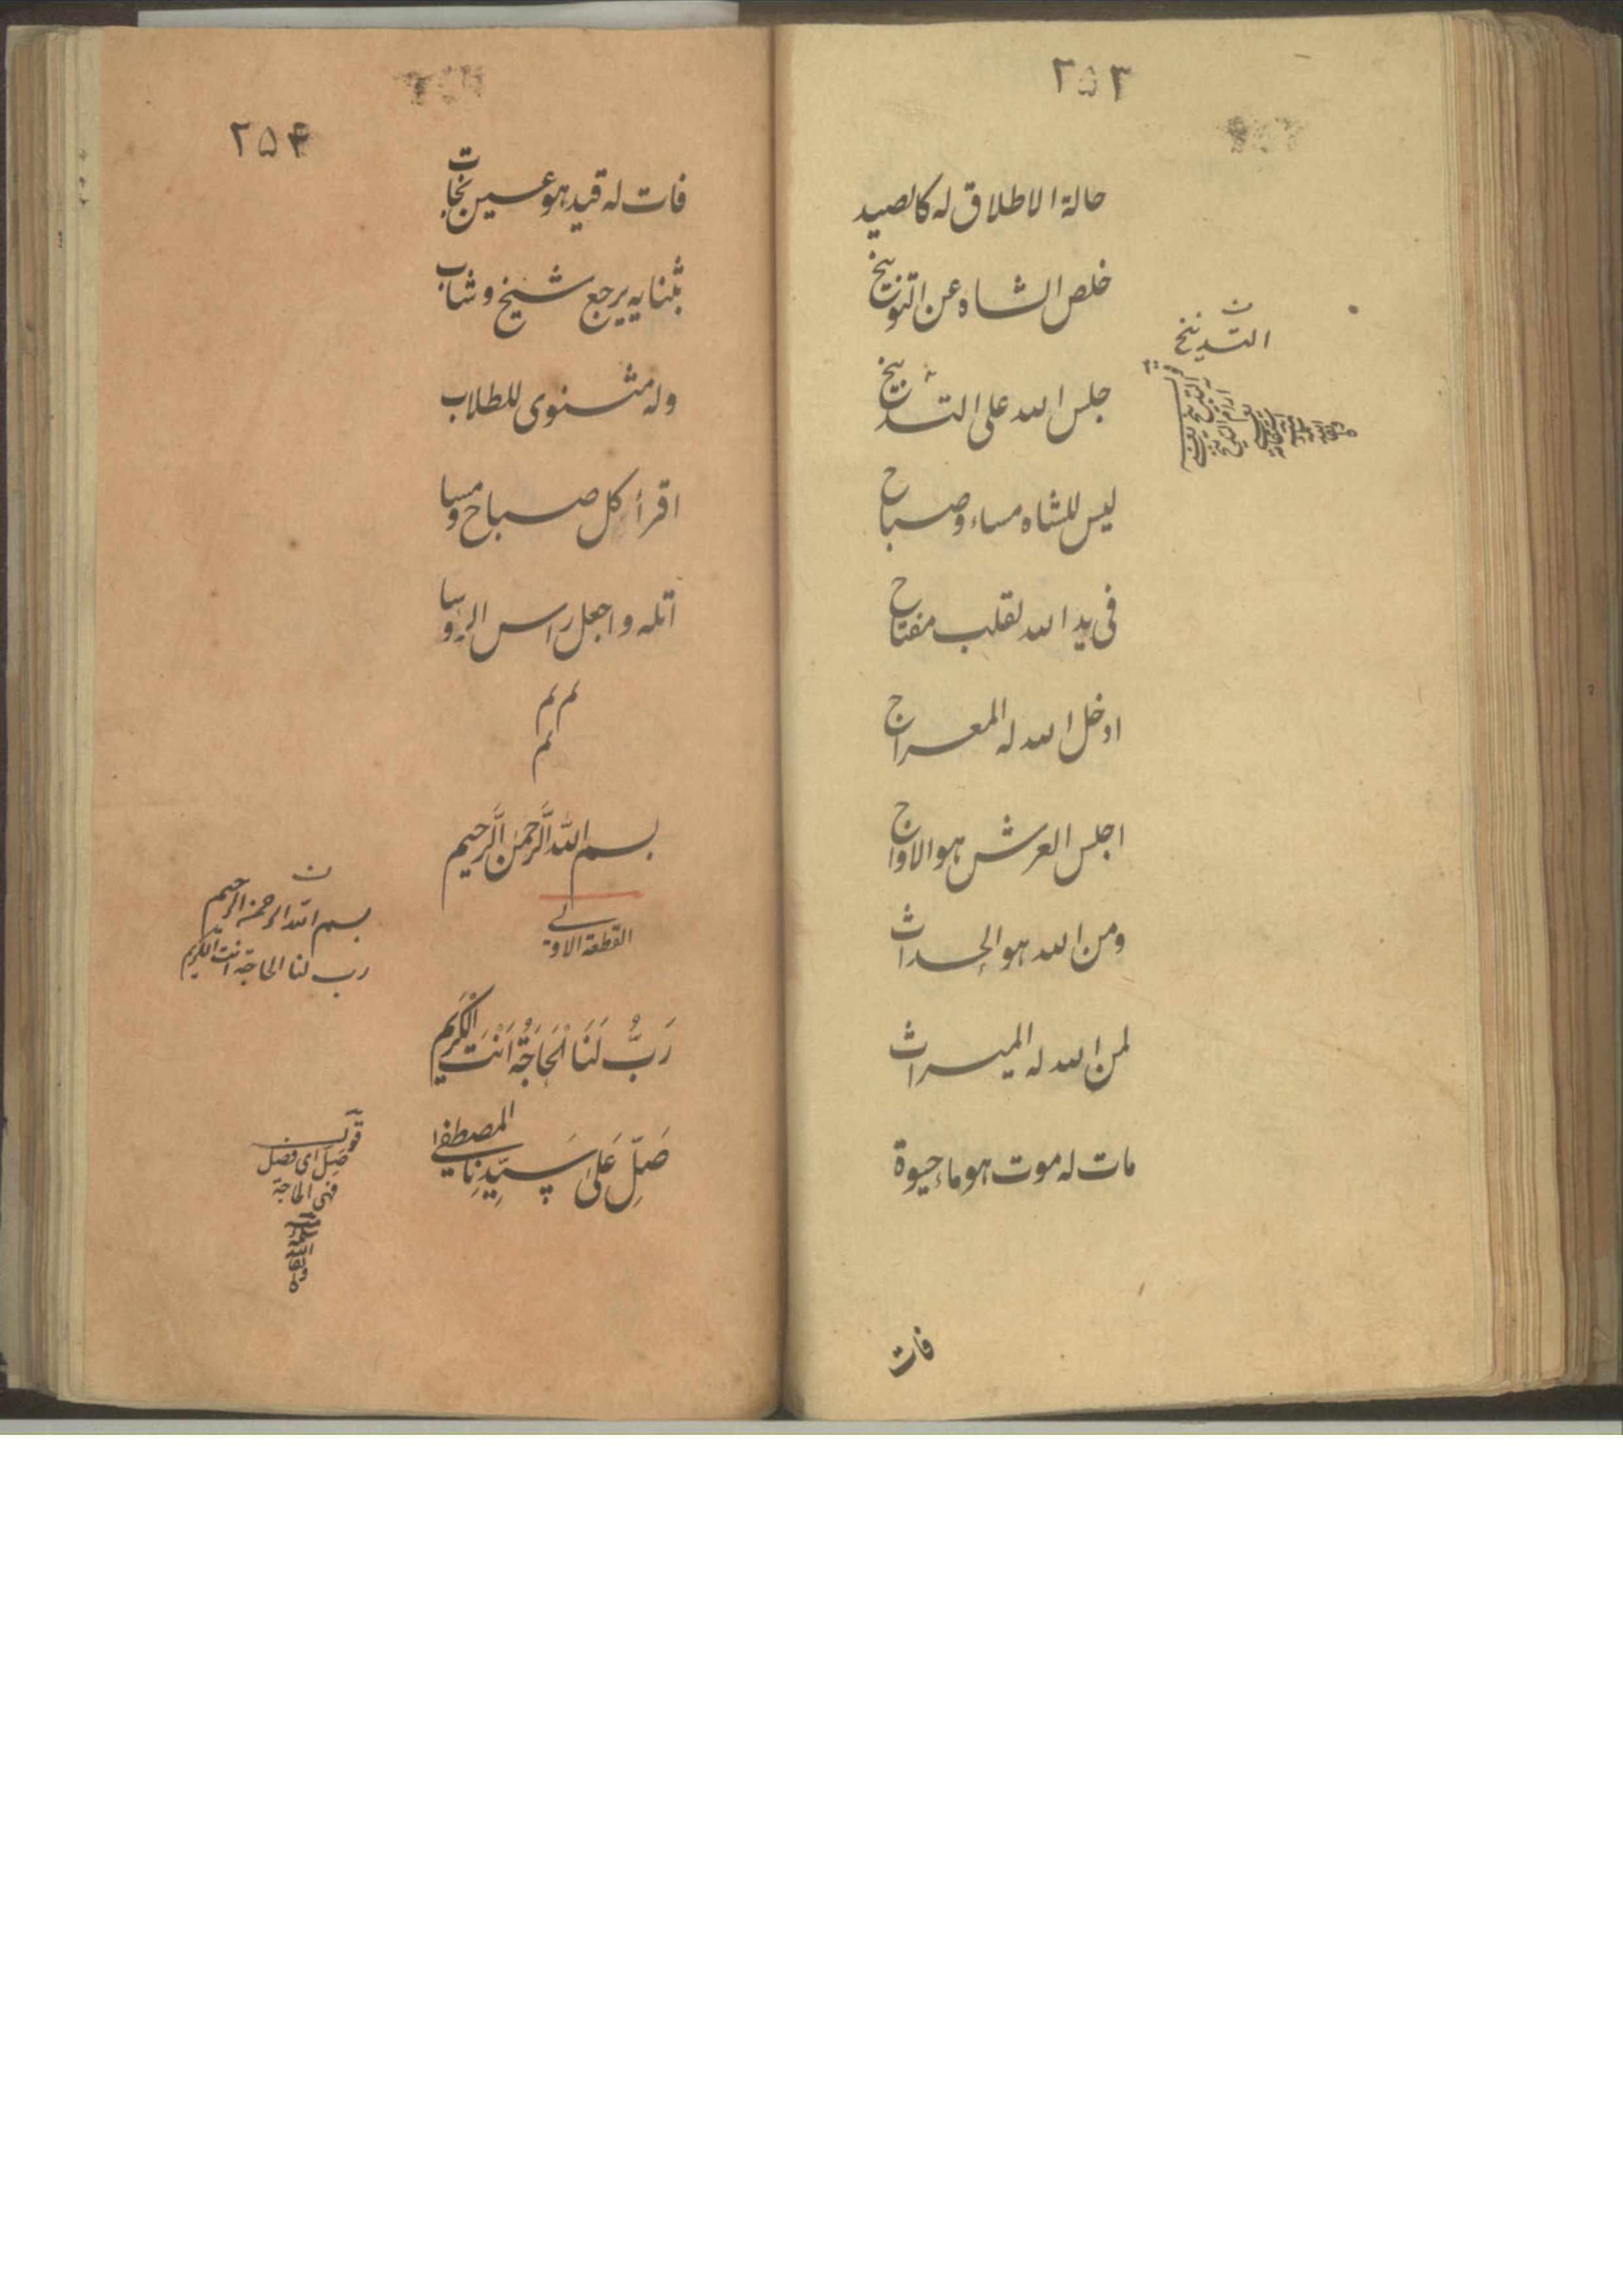 ٢٥٣
حالة الاطلاق له کالصید
خلص الشاه عن التوبیخ
جلس الله علی التدبیخ
ن
التدبیخ
لیس للشاه مساء وصباح
فی ید الله لقلب مفتاح
ادخل الله له المعراج
اجلس العرش هو الاواج
ومن الله هو الحداث
لمن الله له المیراث
مات له موت هو ماء حیوة
فات
٢٥۴
فات له قید هو عین نجات
ثبنا به یرجع شیخ و شاب
وله مثنوی للطلاب
اقرأ کل صباح و مسا
اتله واجعل راس الروسا
بسم الله الرَّحمٰن الرَّحیم
القطعة الاولے
رَبُّ لَنَا الْحَاجَةُ اَنْتَ الْکَرِیْم
صَلِّ عَلیٰ سَیِّدِنَا المصطفٰے
ن
بسم الله الرحمن الرحیم
رب لنا الحاجة انت الکریم
قوله
صَلِّ ای فصل
فهی الحاجة